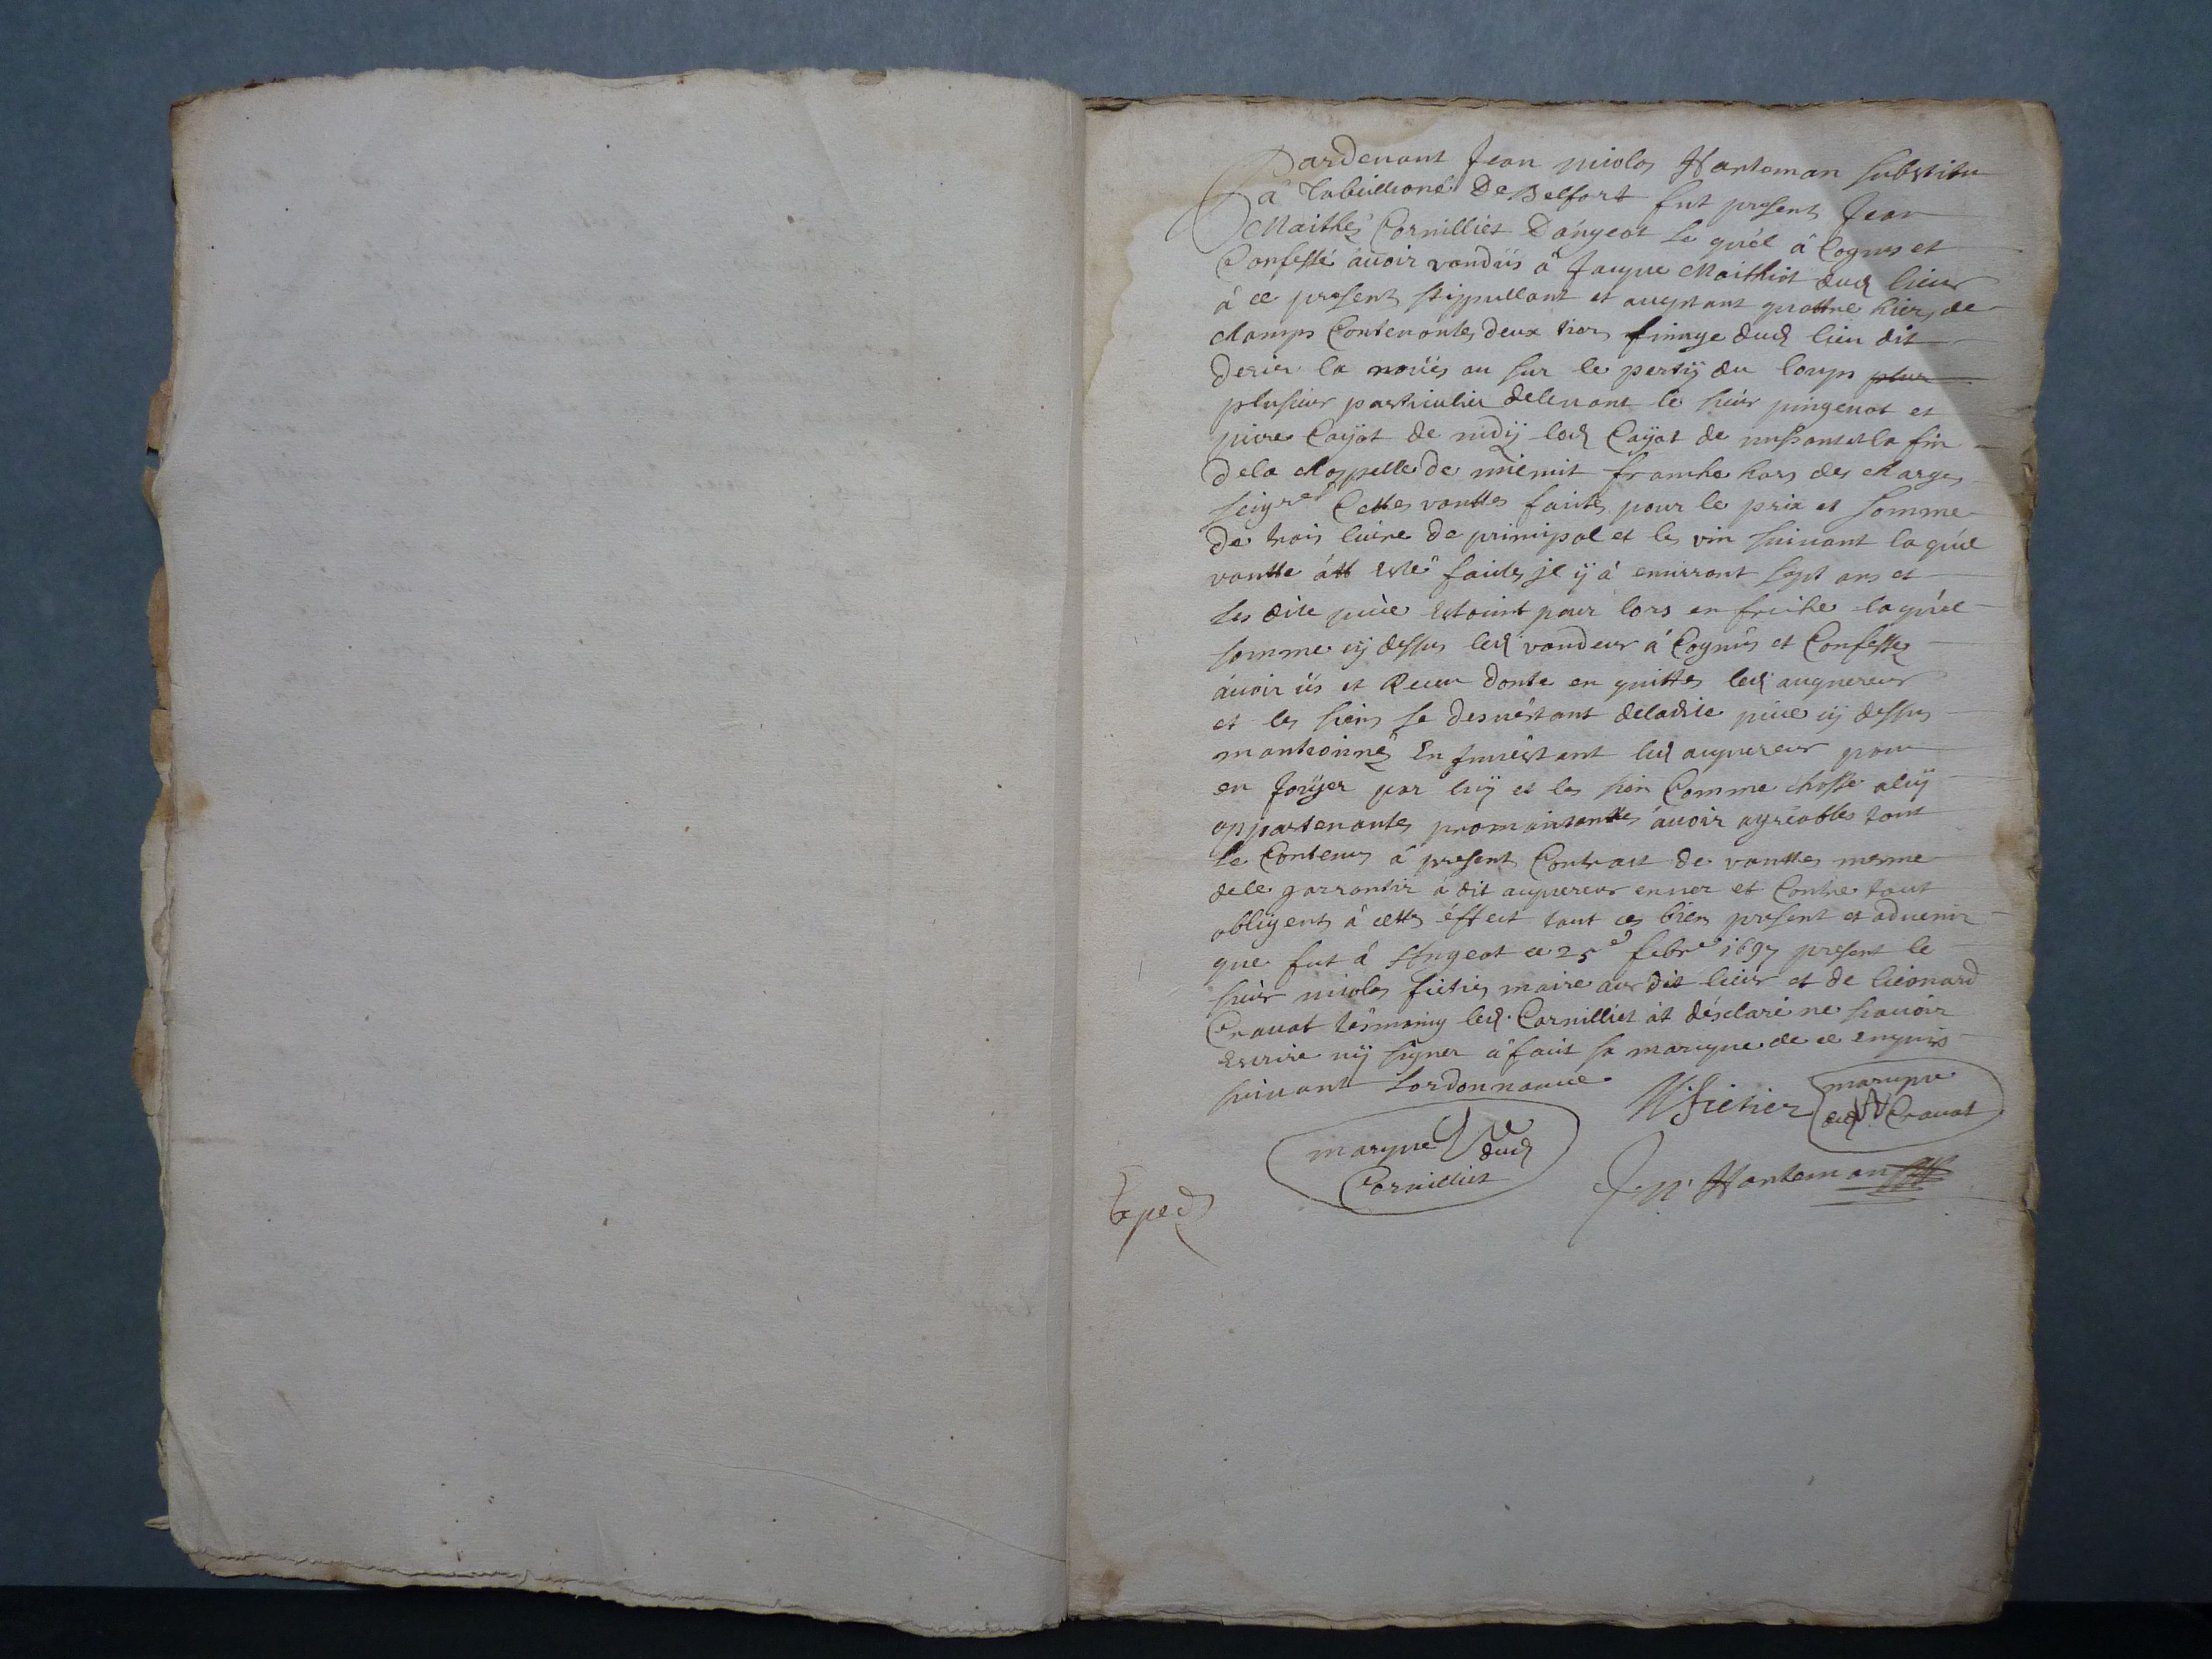 Pardevant Jean nicolas Hanteman substitu
à tabellioné De Belfort fut present Jean
Maithé Cornilliet Dángeot le quél à Cognus et
Confessé avoir vandüs à Jaque Maithiot dud lieur
à ce present stippullant et aceptant quattre hier de
champs Contenantes deux tiers finage dud lieu dit
derier la noües au sur le pertÿ du loups plus
plusieur particulier delevant le sieur pingenot et
piere Caÿot de midÿ lod Caÿot de la fin
dela chappelle de mienuit franche hors des charges
seigrel Cettes vanttes faittes pour le prix et somme
de trois livre de principal et les vin suivant laquél
vantte átt Esté faittes jl ÿ à environt sept ans et
les dite pièce Estoint pour lors en friche laquél
somme cÿ dessus led vandeur à Cognus et Confesse
ávoir üs et Receu donte en quitte led acquereur
et les siens se desvéstant deladite pièce cÿ dessus
mantionné En Jnvéstant led acquereur pour
en Joüÿer par luÿ et les sien Comme chosse aluÿ
appartenantes promaitanttes ávoir agréables tout
le Contenus à present Contract de vanttes mesme
dele garrantir à dit acquereur enver et Contre tout
obligents à cette éffect tout ces bien present et advenir
que fut à Angeot ce 25e febre 1697 present le
sieur nicolas fietier maire au dit lieur et de lieonard
Cravat tésmoing led. Cornilliet át désclaré ne scavoir
Escrire nÿ signer à fait sa marque de ce enquis
suivant Lordonnance
N fietier
marque dud Cravat
marque dud
Cornilliet
J. N. Hanteman
Exped